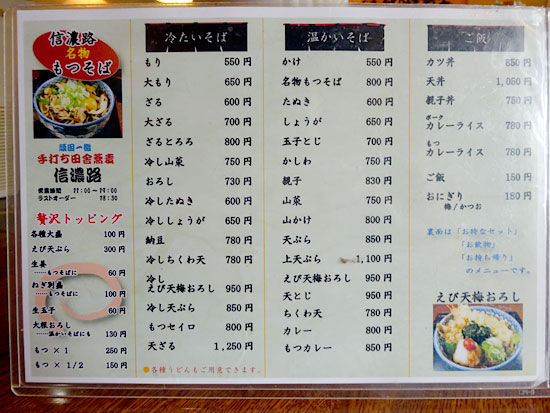 信濃路
名物
もつそば
頑固一徹
手打ち田舎蕎麦
信濃路
営業時間 11:00~19:00
ラストオーダー 18:30
贅沢トッピング
各種大盛 100円
えび天ぷら 300円
生姜
……もつそばに 60円
ねぎ別盛
……もつそばに 100円
生玉子 60円
大根おろし
……温かいそばにも 130円
もつ × 1 250円
もつ × 1/2 150円
冷たいそば
もり 550円
大もり 650円
ざる 600円
大ざる 700円
ざるとろろ 800円
冷し山菜 750円
おろし 730円
冷したぬき 600円
冷ししょうが 650円
納豆 780円
冷しちくわ天 780円
冷し
えび天梅おろし 950円
冷し天ぷら 850円
もつセイロ 900円
天ざる 1,250円
温かいそば
かけ 550円
名物もつそば 800円
たぬき 600円
しょうが 650円
玉子とじ 700円
かしわ 750円
親子 830円
山菜 750円
山かけ 800円
天ぷら 850円
上天ぷら 1,100円
えび天梅おろし 950円
天とじ 950円
ちくわ天 780円
カレー 800円
もつカレー 850円
●各種うどんもご用意できます。
ご飯
カツ丼 850円
天丼 1,050円
親子丼 750円
ポーク
カレーライス 780円
もつ
カレーライス 780円
ご飯 150円
おにぎり 180円
梅/かつお
裏面は「お得なセット」
「お飲物」
「お持ち帰り」
のメニューです。
えび天梅おろし